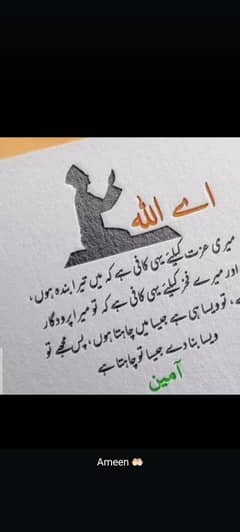 اے اللہ
میری عزت کیلئے یہی کافی ہے کہ میں تیرا بندہ ہوں،
اور میرے فخر کیلئے یہی کافی ہے کہ تو میرا پروردگار
ہے، تو ویسا ہی ہے جیسا میں چاہتا ہوں، پس مجھے تو
ویسا بنا دے جیسا تو چاہتا ہے
آمین
Ameen 🤲🏻